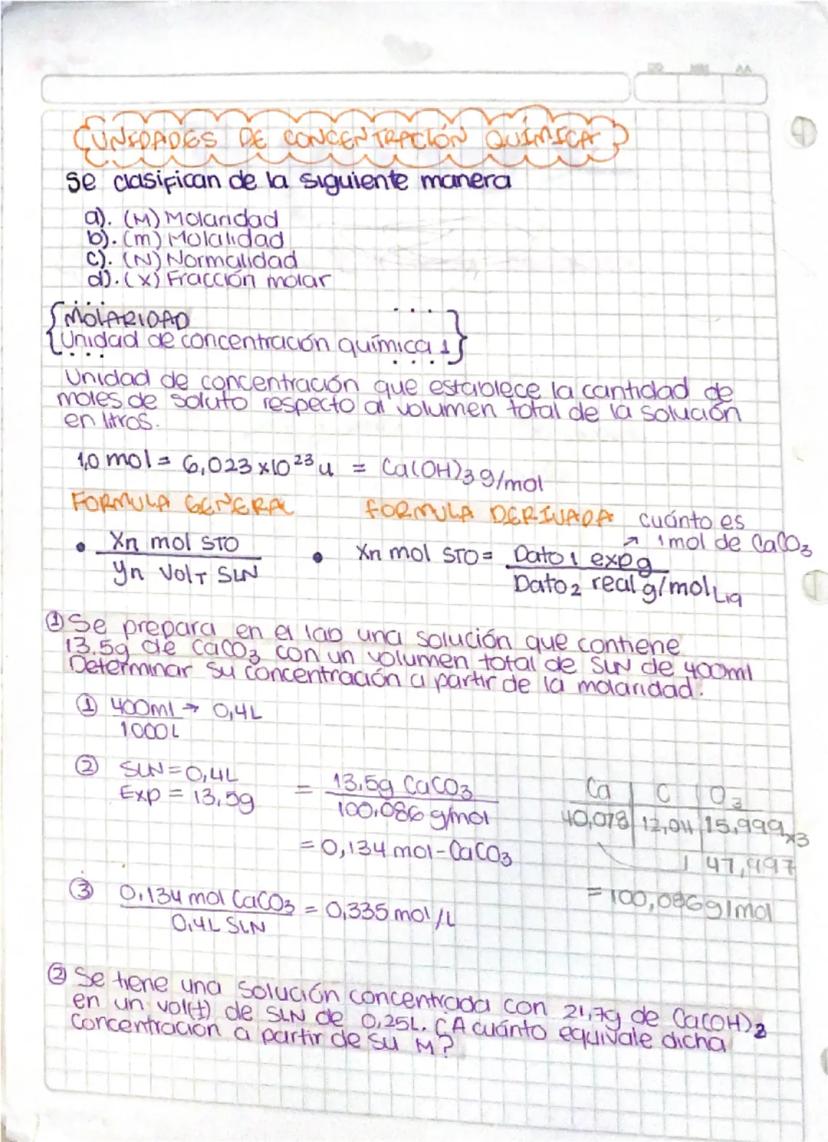 UNIDADES DE CONCENTRACIÓN QUÍMICA
Se clasifican de la siguiente manera
a). (M) Molaridad
b). (m) Molalidad
c). (N) Normalidad
d). (x) Fracción molar
MOLARIDAD
Unidad de concentración química 1
Unidad de concentración que establece la cantidad de
moles de soluto respecto al volumen total de la solución
en litros.
1,0 mol = 6,023 x10²³ u = Ca(OH)₃ g/mol
FORMULA GENERAL FORMULA DERIVADA cuánto es
↗ 1 mol de CaCO₃
• Xn mol STO • Xn mol STO = Dato₁ exp g
Yn Vol T SLN Dato₂ real g/mol Liq
① Se prepara en el lab una solución que contiene
13.5g de CaCO₃ con un volumen total de SLN de 400ml
Determinar su concentración a partir de la molaridad.
① 400ml → 0,4L
1000L
② SLN = 0,4L = 13,5g CaCO₃
Exp = 13,5g 100,086 g/mol
= 0,134 mol - CaCO₃
Ca C O₃
40,078 12,011 15,999 x3
47,997
= 100,086 g/mol
③ 0,134 mol CaCO₃ = 0,335 mol/L
0,4L SLN
② Se tiene una solución concentrada con 21,7g de Ca(OH)₂
en un vol(t) de SLN de 0,25L. ¿A cuánto equivale dicha
concentración a partir de su M?